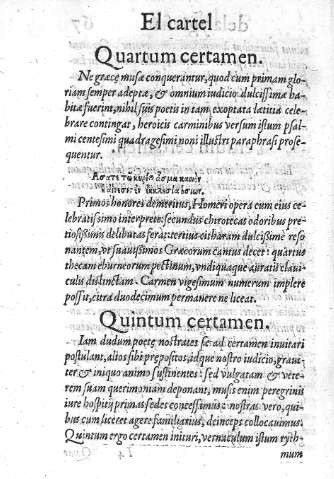 El cartel
Quartum certamen.
Ne græcæ musæ conquerantur, quod cum primam glo-
riam semper adeptæ, & omnium iudicio dulcissimæ ha-
bitæ fuerint, nihil suis poetis in tam exoptata lætitia cele-
brare contingat, heroicis carminibus versum istum psal-
mi centesimi quadragesimi noni illustri paraphrasi prose-
quentur.
Primos honores demeritus, Homeri opera cum eius ce-
lebratissimo interprete: secundus chirotecas odoribus pre-
tiosissimis delibutas feræt: tertius citharam dulcissimè reso
nantem, vt suauissimos Græcorum cantus decet: quartus
thecam eburneorum pectinum, vndiquaque auratis clauicu
lis distinctam. Carmen vigesimum numerum implere
possit, citra duodecimum permanere ne liceat.
Quintum certamen.
Iam dudum poetæ nostrates se ad certamen inuitari
postulant, alios sibi præpositos, idque nostro iudicio, grauiter
& iniquo animo sustinentes: sed vulgatam & vete-
rem suam querimoniam deponant, musis enim peregrinis
iure hospitij primas sedes concessimus: nostras vero, qui-
bus cum licet agere familiarius, deinceps collocauimus.
Quintum ergo certamen inituri, vernaculum istum ryth-
mum